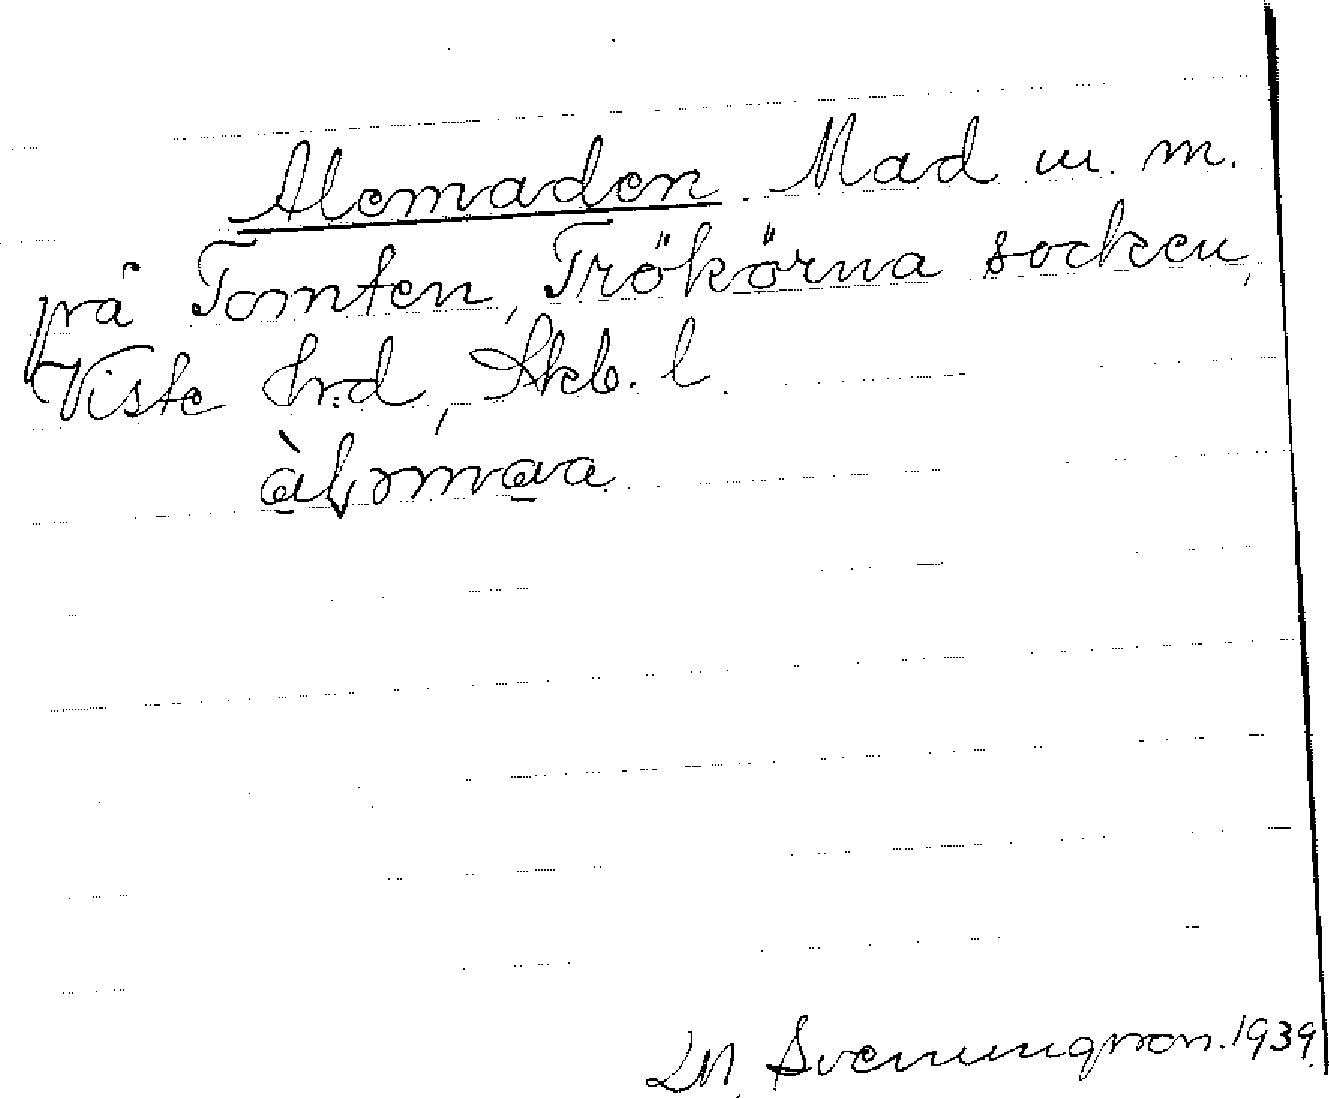 Alemaden. Mad m. m.
på Tomten, Trökörna socken,
Viste hrd, Skb. l.
LM. Svenungsson. 1939.